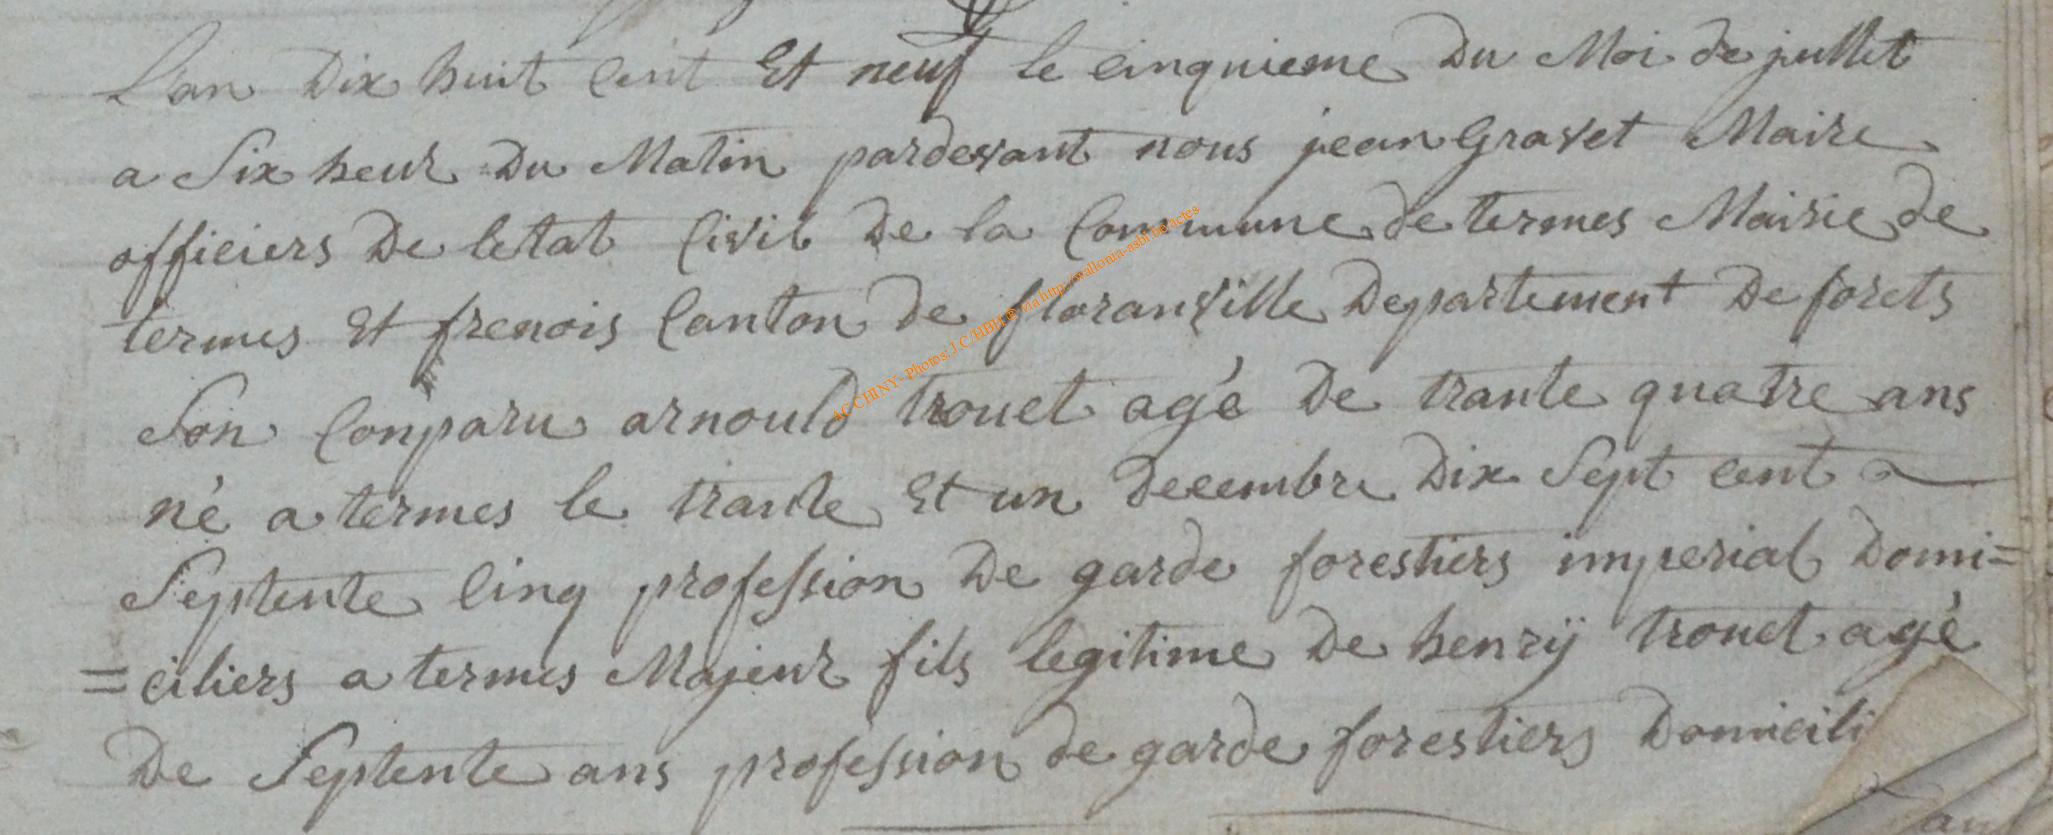 L'an Dix huit Cent Et neuf le Cinquieme Du Moi de jullet
a Six heur Du Matin pardevant nous jean Gravet Maire
officiers De letat Civil De la Commune de termes Mairie de
termes Et frenois Canton de floranville Departement De forets
Son Conparu arnould trouet agé De trante quatre ans
né a termes le trante Et un Decembre Dix Sept cent
Septente Cinq profession De garde forestiers imperial Domi=
=ciliers a termes Majeur fils legitime De henrÿ trouet agé
De Septente ans profession de garde forestiers Domicili
AC CHINY - Photos: J.C.HBH @ via http://wallonia-asbl.be/actes